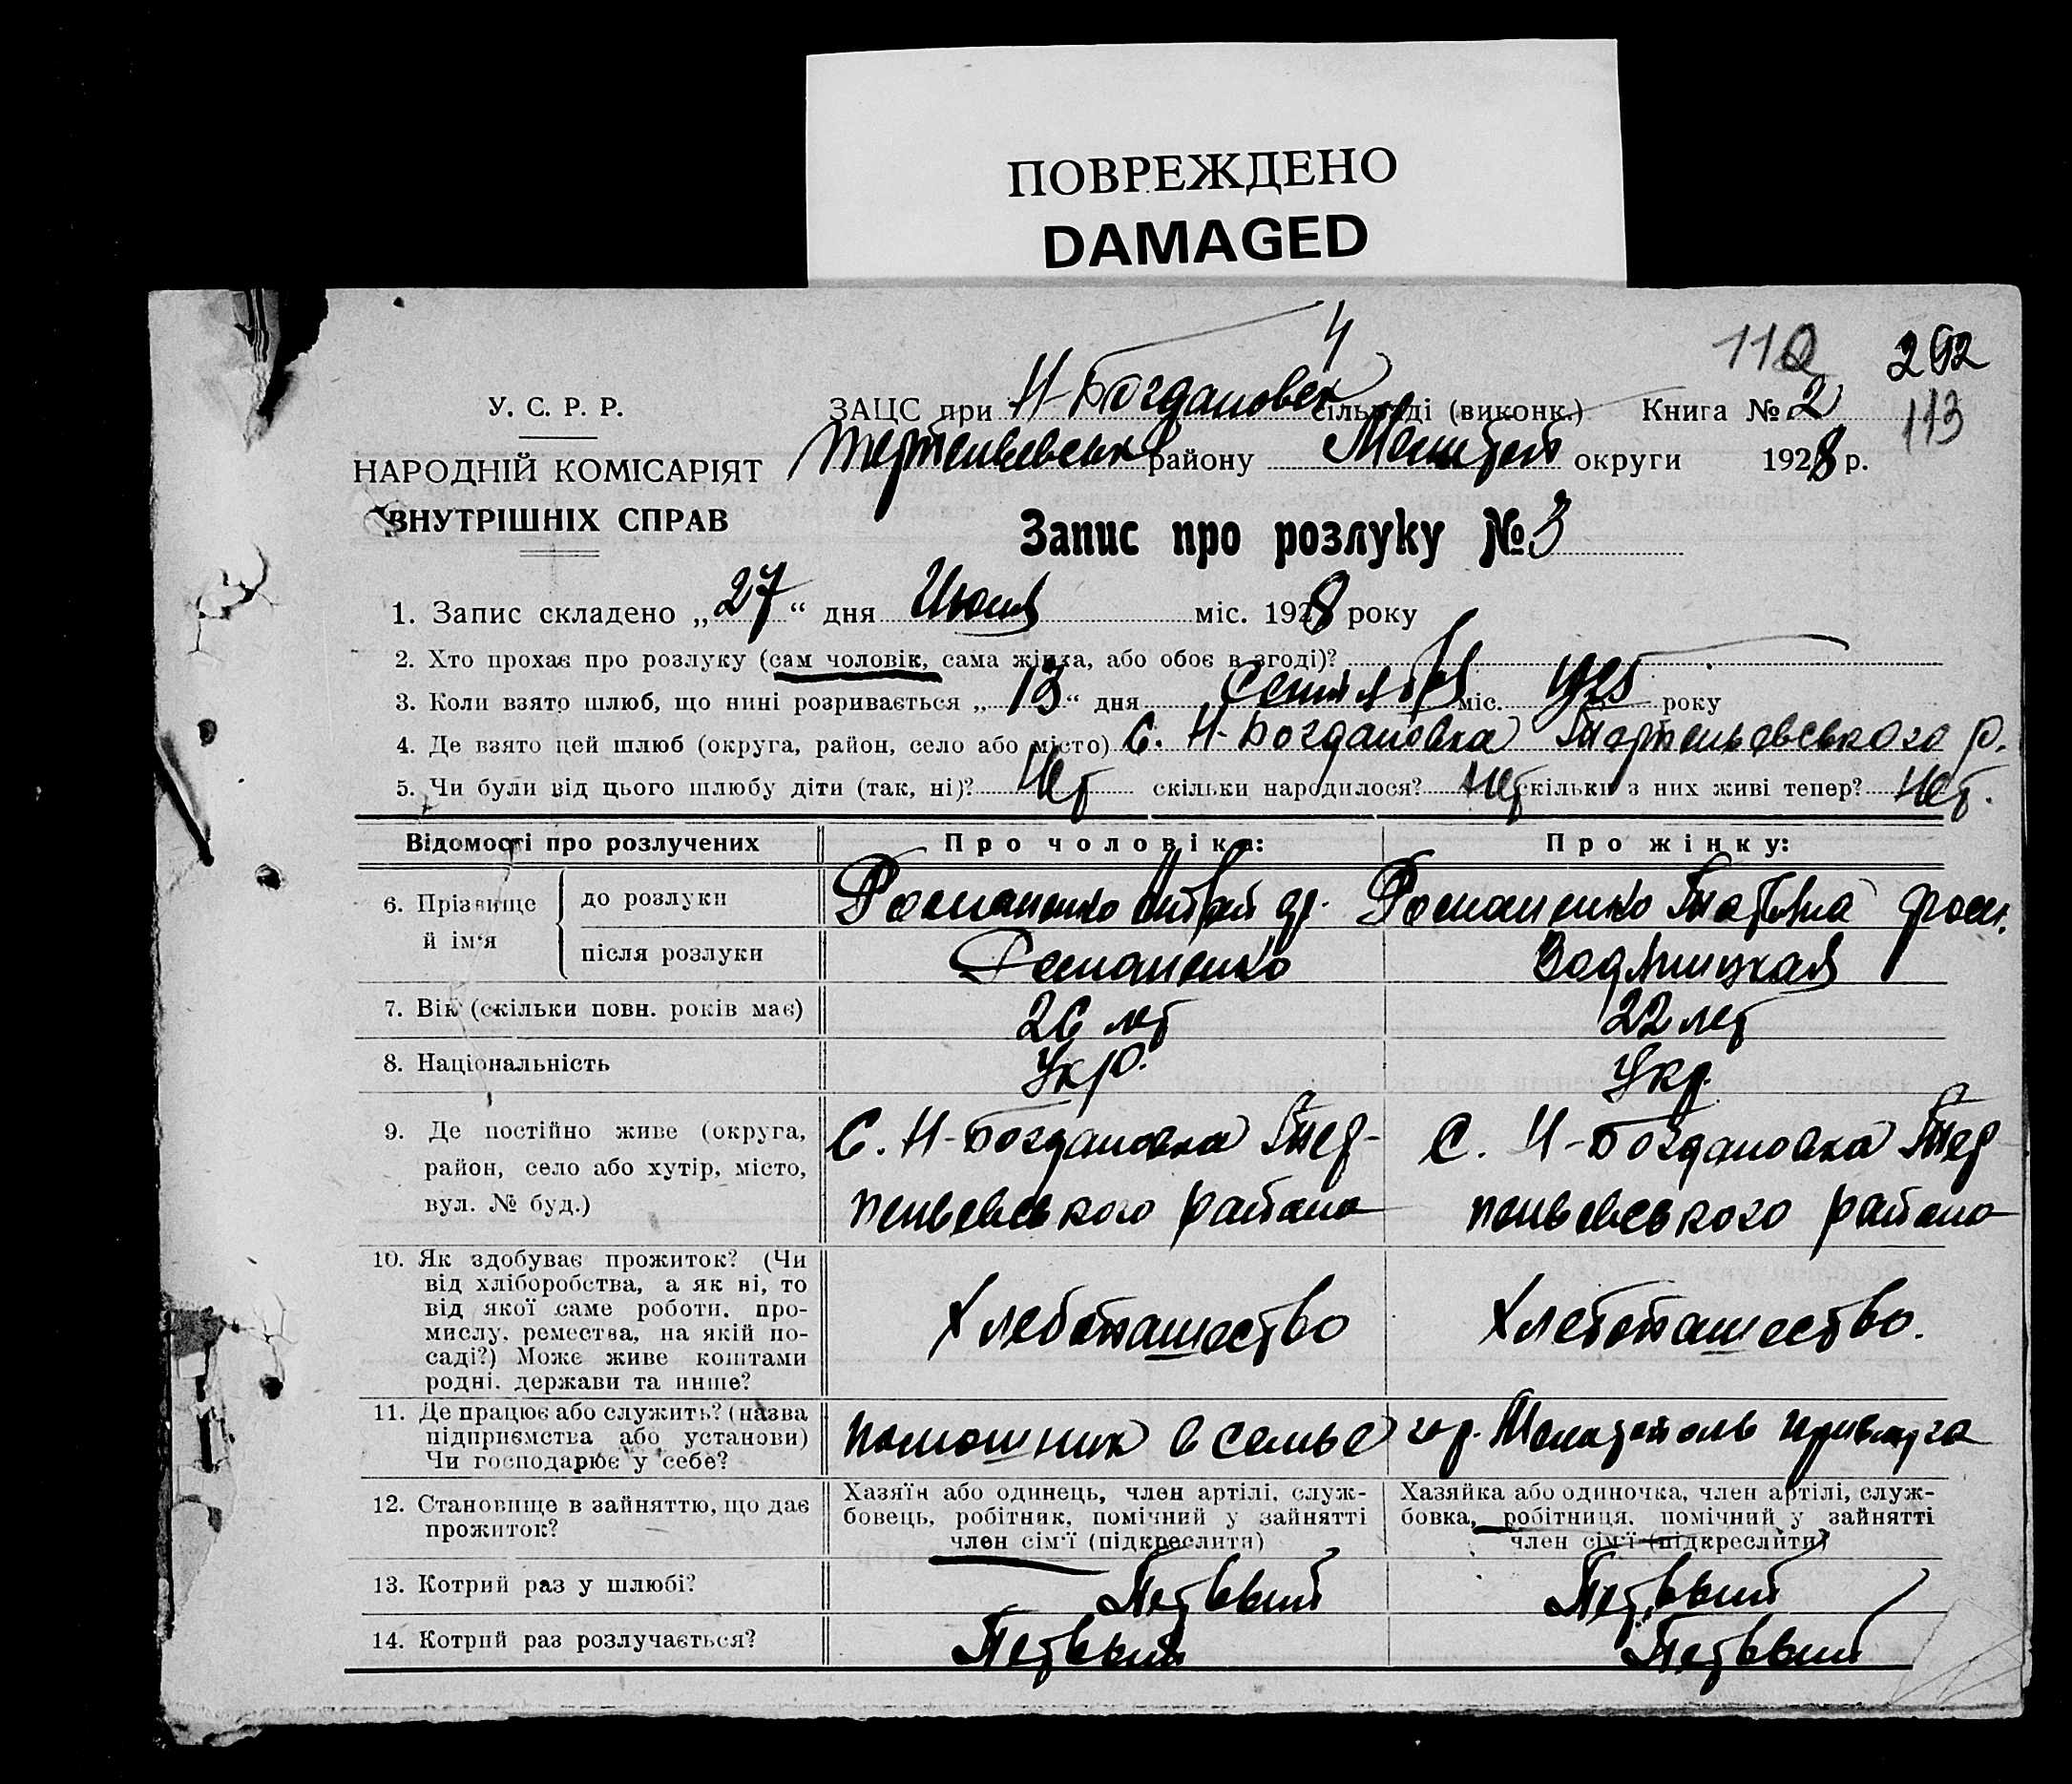 ПОВРЕЖДЕНО
DAMAGED
4
110 292
У. С. Р. Р.
ЗАЦС при Н-Богдановск сільраді (виконк.) Книга № 2
113
НАРОДНІЙ КОМІСАРІЯТ
ВНУТРІШНІХ СПРАВ
району округи 1928 р.
Запис про розлуку № 3
1. Запис складено „27“ дня міс. 1928 року
2. Хто прохає про розлуку (сам чоловік, сама жінка, або обоє в згоді)?
3. Коли взято шлюб, що нині розривається „13“ дня Сентября міс. 1925 року
4. Де взято цей шлюб (округа, район, село або місто) С. Н-Богдановка р.
5. Чи були від цього шлюбу діти (так, ні)? Нет скільки народилося? Нет скільки з них живі тепер? Нет.
Відомості про розлучених
Про чоловіка:
Про жінку:
6. Прізвище й ім'я
до розлуки
Романенко
Романенко Татьяна
після розлуки
Романенко
Водяницкая
7. Вік (скільки повн. років має)
26 лет
22 лет
8. Національність
Укр.
Укр.
9. Де постійно живе (округа,
район, село або хутір, місто,
вул. № буд.)
С. Н-Богдановка Тер-
пеньевського района
С. Н-Богдановка Тер
пеньевського района
10. Як здобуває прожиток? (Чи
від хліборобства, а як ні, то
від якої саме роботи, про-
мислу, ремества, на якій по-
саді?) Може живе коштами
родні, держави та инше?
Хлебопашество
Хлебопашество.
11. Де працює або служить? (назва
підприємства або установи)
Чи господарює у себе?
помошник в семье
гор. Мелитополь
12. Становище в зайняттю, що дає
прожиток?
Хазяїн або одинець, член артілі, служ-
бовець, робітник, помічний у зайнятті
член сім'ї (підкреслити)
Хазяйка або одиночка, член артілі, служ-
бовка, робітниця, помічний у зайнятті
член сім'ї (підкреслити)
13. Котрий раз у шлюбі?
Первый
Первый
14. Котрий раз розлучається?
Первый
Первый